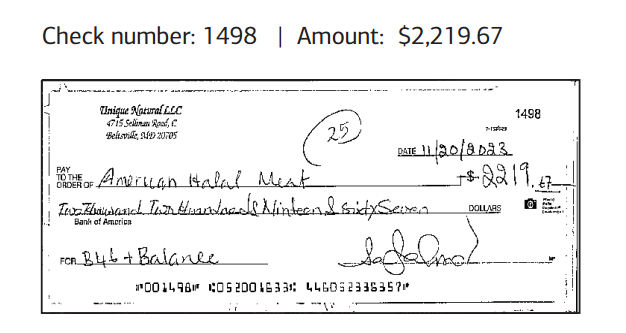 Check number: 1498 | Amount: $2,219.67
Unique Natural LLC
4715 Sellman Road, C
Beltsville, MD 20705
1498
25
DATE 11/20/2023
PAY TO THE ORDER OF American Halal Meat $ 2219.67
Two Thousand Two Hundred & Ninteen & Sixty Seven DOLLARS
Bank of America
FOR B46 + Balance